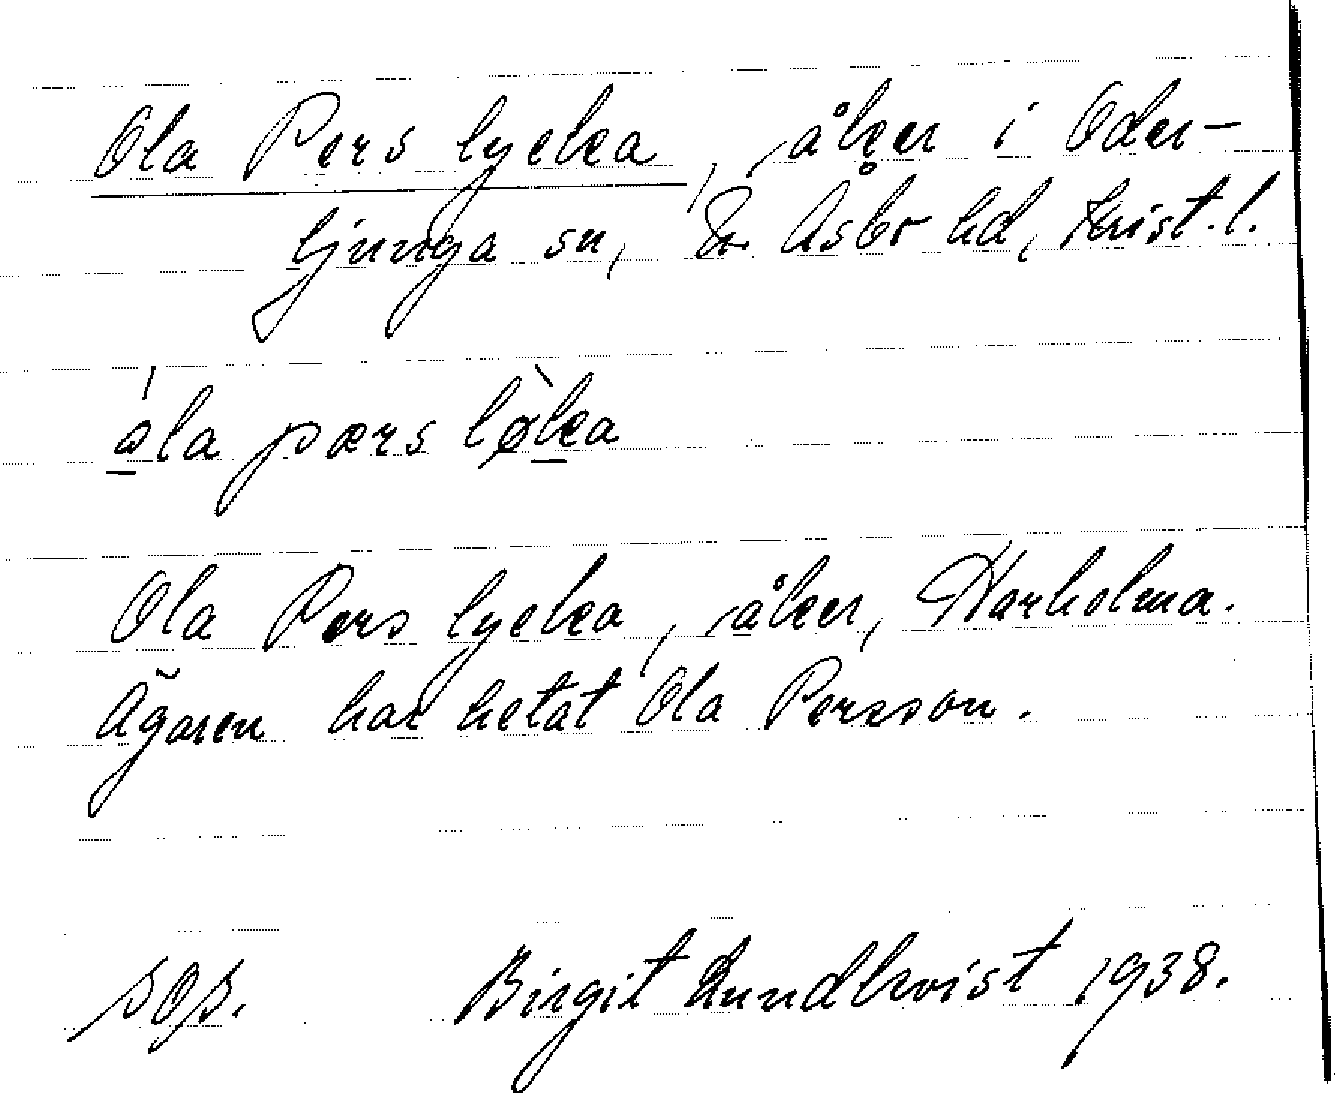 Ola Pers lycka, åker i Oder-
ljunga sn, N. Åsbo hd, Krist. l.
ó̱la pærs lø̀ḵa
Ola Pers lycka, åker, Harholma.
Ägaren har hetat Ola Persson.
sOs. Birgit Lundkvist 1938.